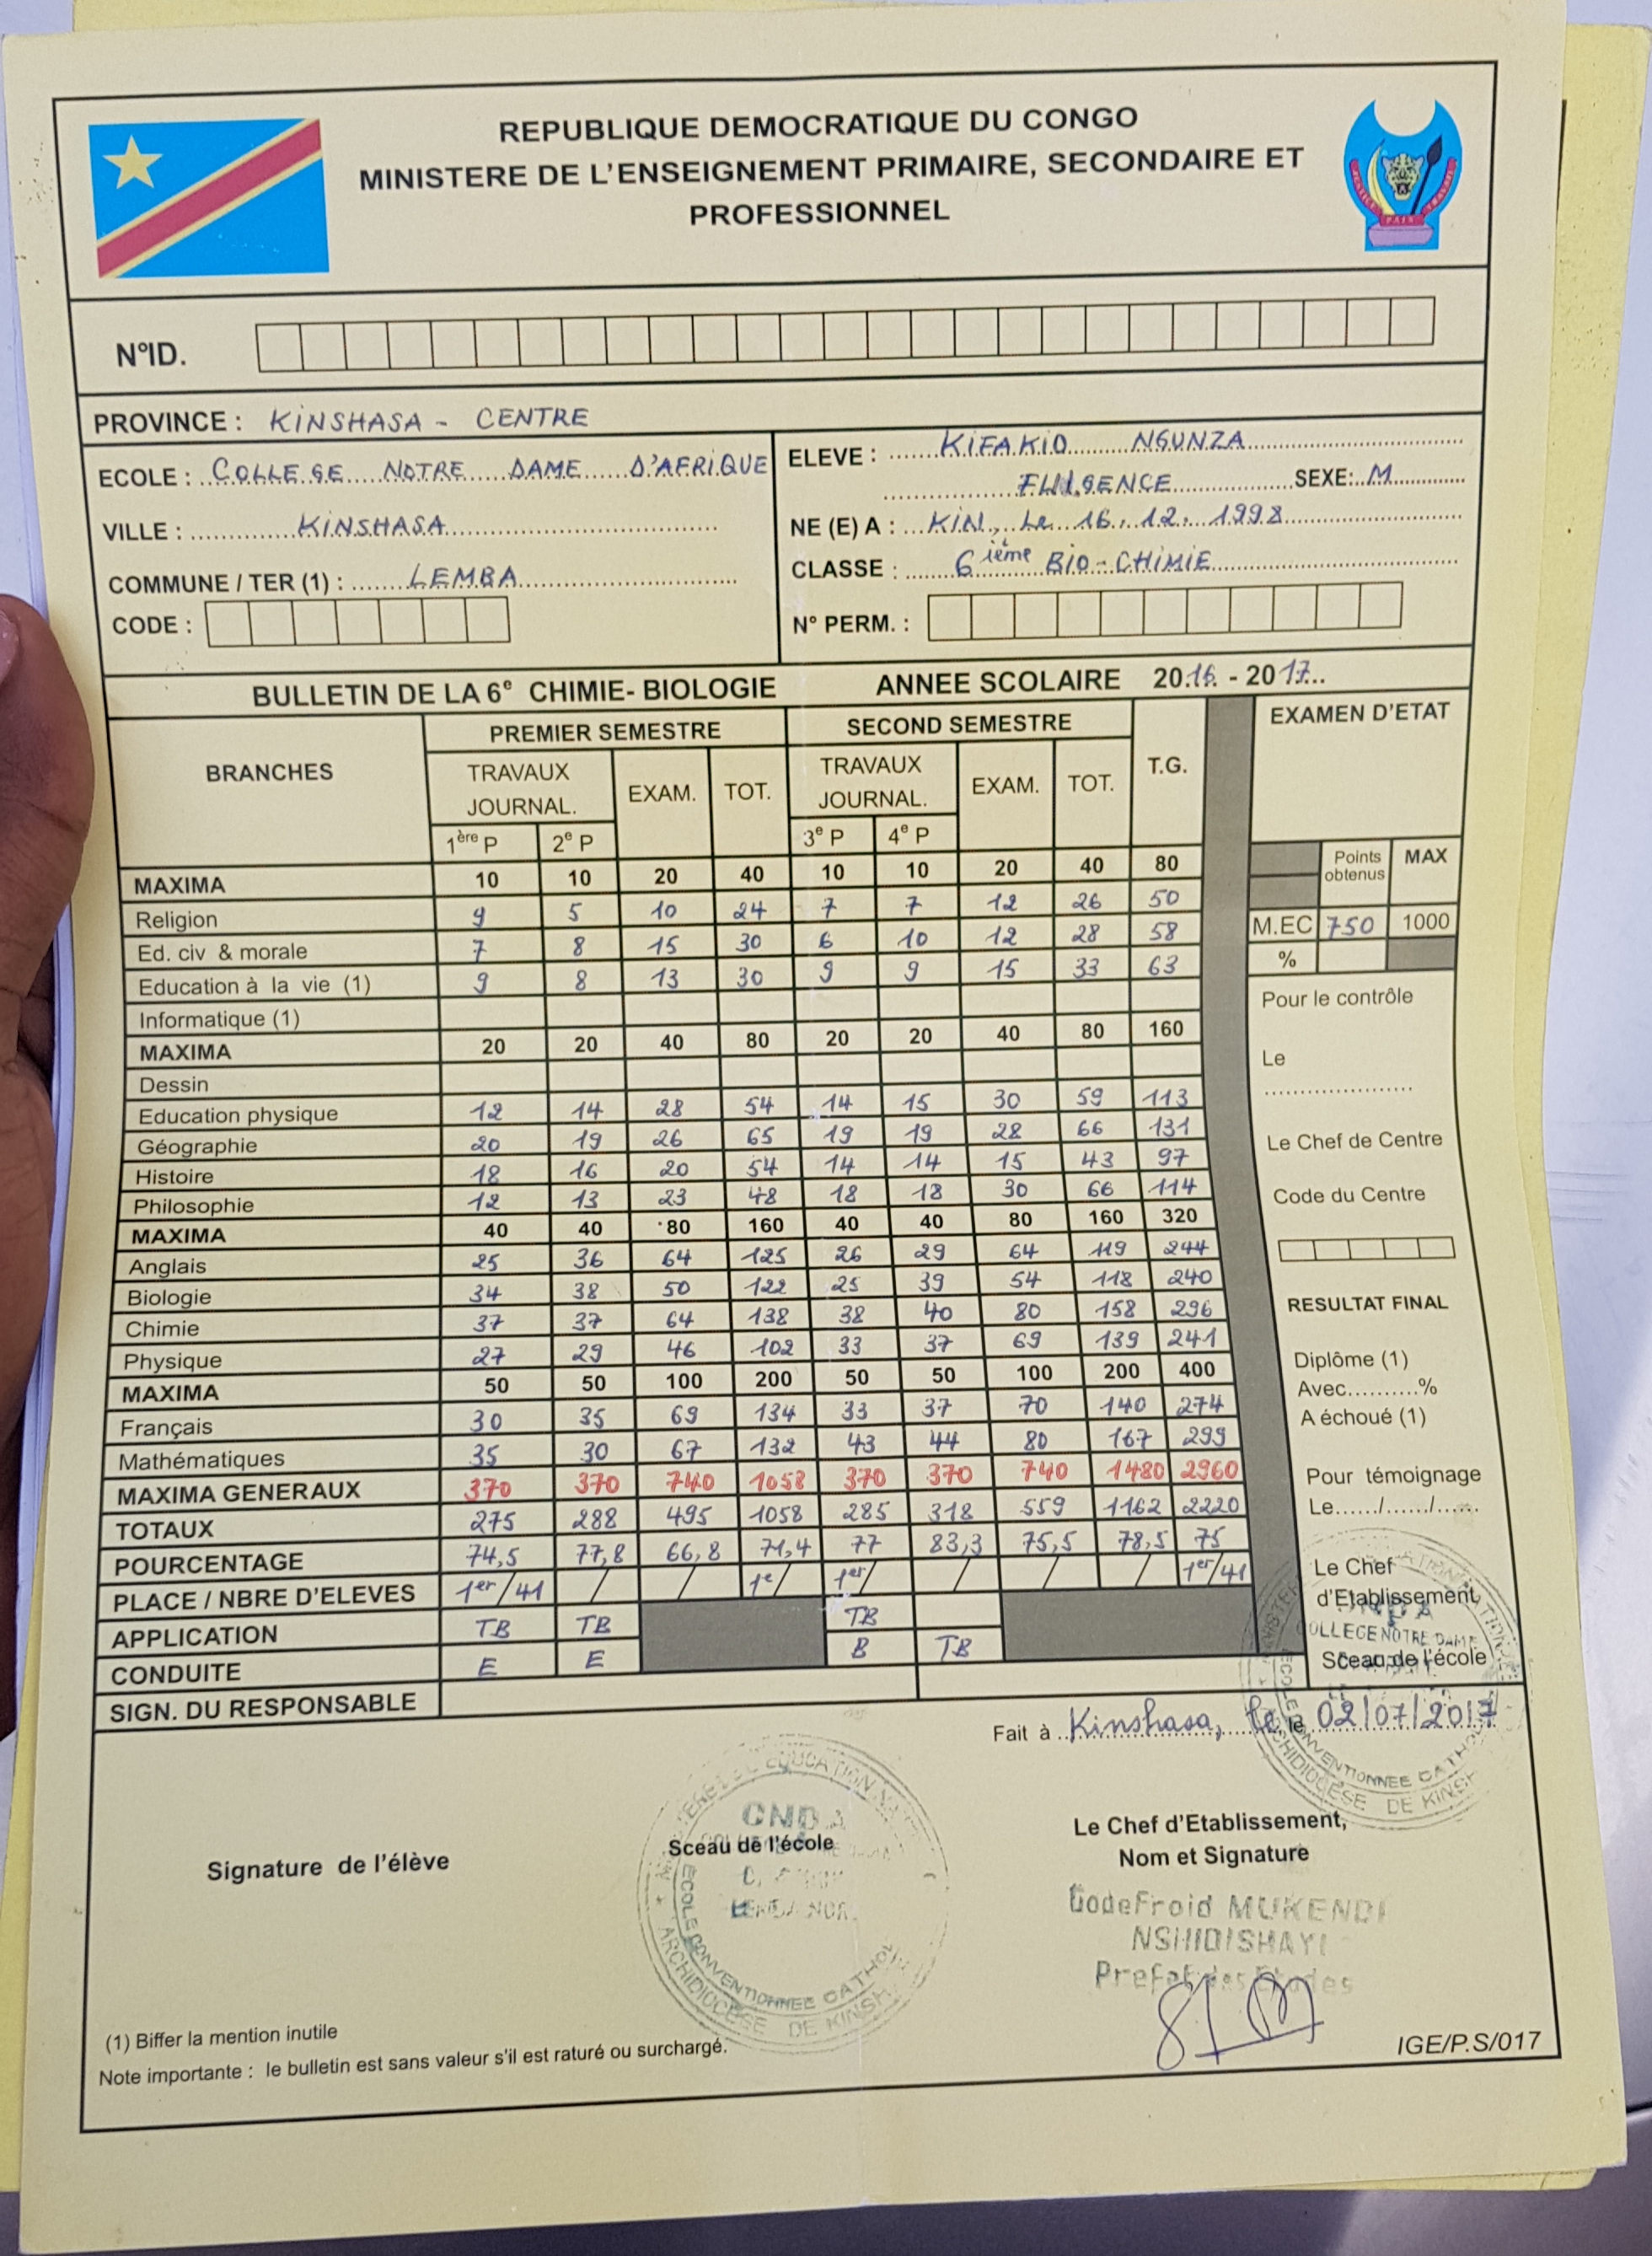 REPUBLIQUE DEMOCRATIQUE DU CONGO
MINISTERE DE L'ENSEIGNEMENT PRIMAIRE, SECONDAIRE ET
PROFESSIONNEL
N°ID.
PROVINCE : KINSHASA - CENTRE
ECOLE : COLLEGE NOTRE DAME D'AFRIQUE
VILLE : KINSHASA
COMMUNE / TER (1) : LEMBA
CODE :
ELEVE : KIFAKIO NGUNZA
FULGENCE SEXE: M
NE (E) A : KIN, Le 16.12.1998
CLASSE : 6 ième BIO-CHIMIE
N° PERM. :
BULLETIN DE LA 6e CHIMIE- BIOLOGIE ANNEE SCOLAIRE 2016 - 2017
BRANCHES PREMIER SEMESTRE SECOND SEMESTRE T.G. EXAMEN D'ETAT
TRAVAUX JOURNAL. EXAM. TOT. TRAVAUX JOURNAL. EXAM. TOT.
1ère P 2e P 3e P 4e P
MAXIMA 10 10 20 40 10 10 20 40 80
Religion 9 5 10 24 7 7 12 26 50
Ed. civ & morale 7 8 15 30 6 10 12 28 58
Education à la vie (1) 9 8 13 30 9 9 15 33 63
Informatique (1)
MAXIMA 20 20 40 80 20 20 40 80 160
Dessin
Education physique 12 14 28 54 14 15 30 59 113
Géographie 20 19 26 65 19 19 28 66 131
Histoire 18 16 20 54 14 14 15 43 97
Philosophie 12 13 23 48 18 18 30 66 114
MAXIMA 40 40 80 160 40 40 80 160 320
Anglais 25 36 64 125 26 29 64 119 244
Biologie 34 38 50 122 25 39 54 118 240
Chimie 37 37 64 138 38 40 80 158 296
Physique 27 29 46 102 33 37 69 139 241
MAXIMA 50 50 100 200 50 50 100 200 400
Français 30 35 69 134 33 37 70 140 274
Mathématiques 35 30 67 132 43 44 80 167 299
MAXIMA GENERAUX 370 370 740 1058 370 370 740 1480 2960
TOTAUX 275 288 495 1058 285 318 559 1162 2220
POURCENTAGE 74,5 77,8 66,8 71,4 77 83,3 75,5 78,5 75
PLACE / NBRE D'ELEVES 1er/41 / / 1e/ 1er/ / / / 1er/41
APPLICATION TB TB TB
CONDUITE E E B TB
SIGN. DU RESPONSABLE
Points obtenus MAX
M.EC 750 1000
%
Pour le contrôle
Le
Le Chef de Centre
Code du Centre
RESULTAT FINAL
Diplôme (1)
Avec..........%
A échoué (1)
Pour témoignage
Le....../....../......
Le Chef
d'Etablissement
COLLEGE NOTRE DAME
Sceau de l'école
Fait à Kinshasa, le, le 02/07/2017
CONVENTIONNEE CATHO
ARCHIDIOCESE DE KINSH
Signature de l'élève
CNDA
Sceau de l'école
ECOLE CONVENTIONNEE CATHOL
ARCHIDIOCESE DE KINSH
Le Chef d'Etablissement,
Nom et Signature
GodeFroid MUKENDI
NSHIDISHAYI
Prefet des Etudes
(1) Biffer la mention inutile
Note importante : le bulletin est sans valeur s'il est raturé ou surchargé.
IGE/P.S/017